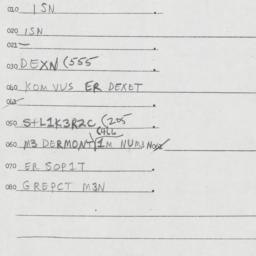 010 ISN
020 ISN
021
030 DEXN (555
040 KOM VUS ER DEXET
050 S+L1K3R2C (205
CALL
060 M3 DERMONT 1M NUM3
070 ER SOP1T
080 GREPCT M3N